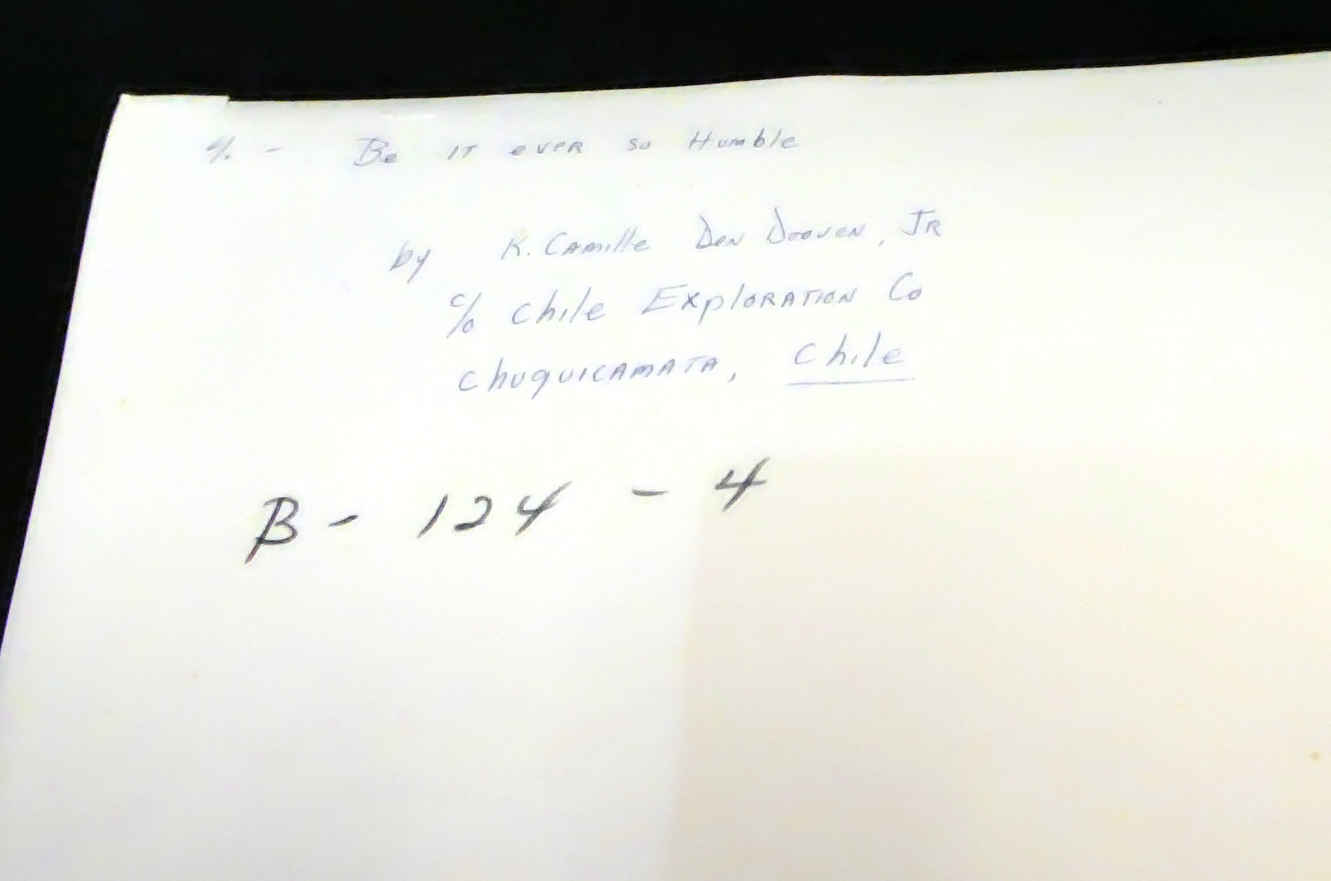 4. - Be IT eveR so Humble
by K. Camille Den Dooven, JR
c/o Chile ExploRATION Co
ChuquicAMATA, Chile
B - 124 - 4